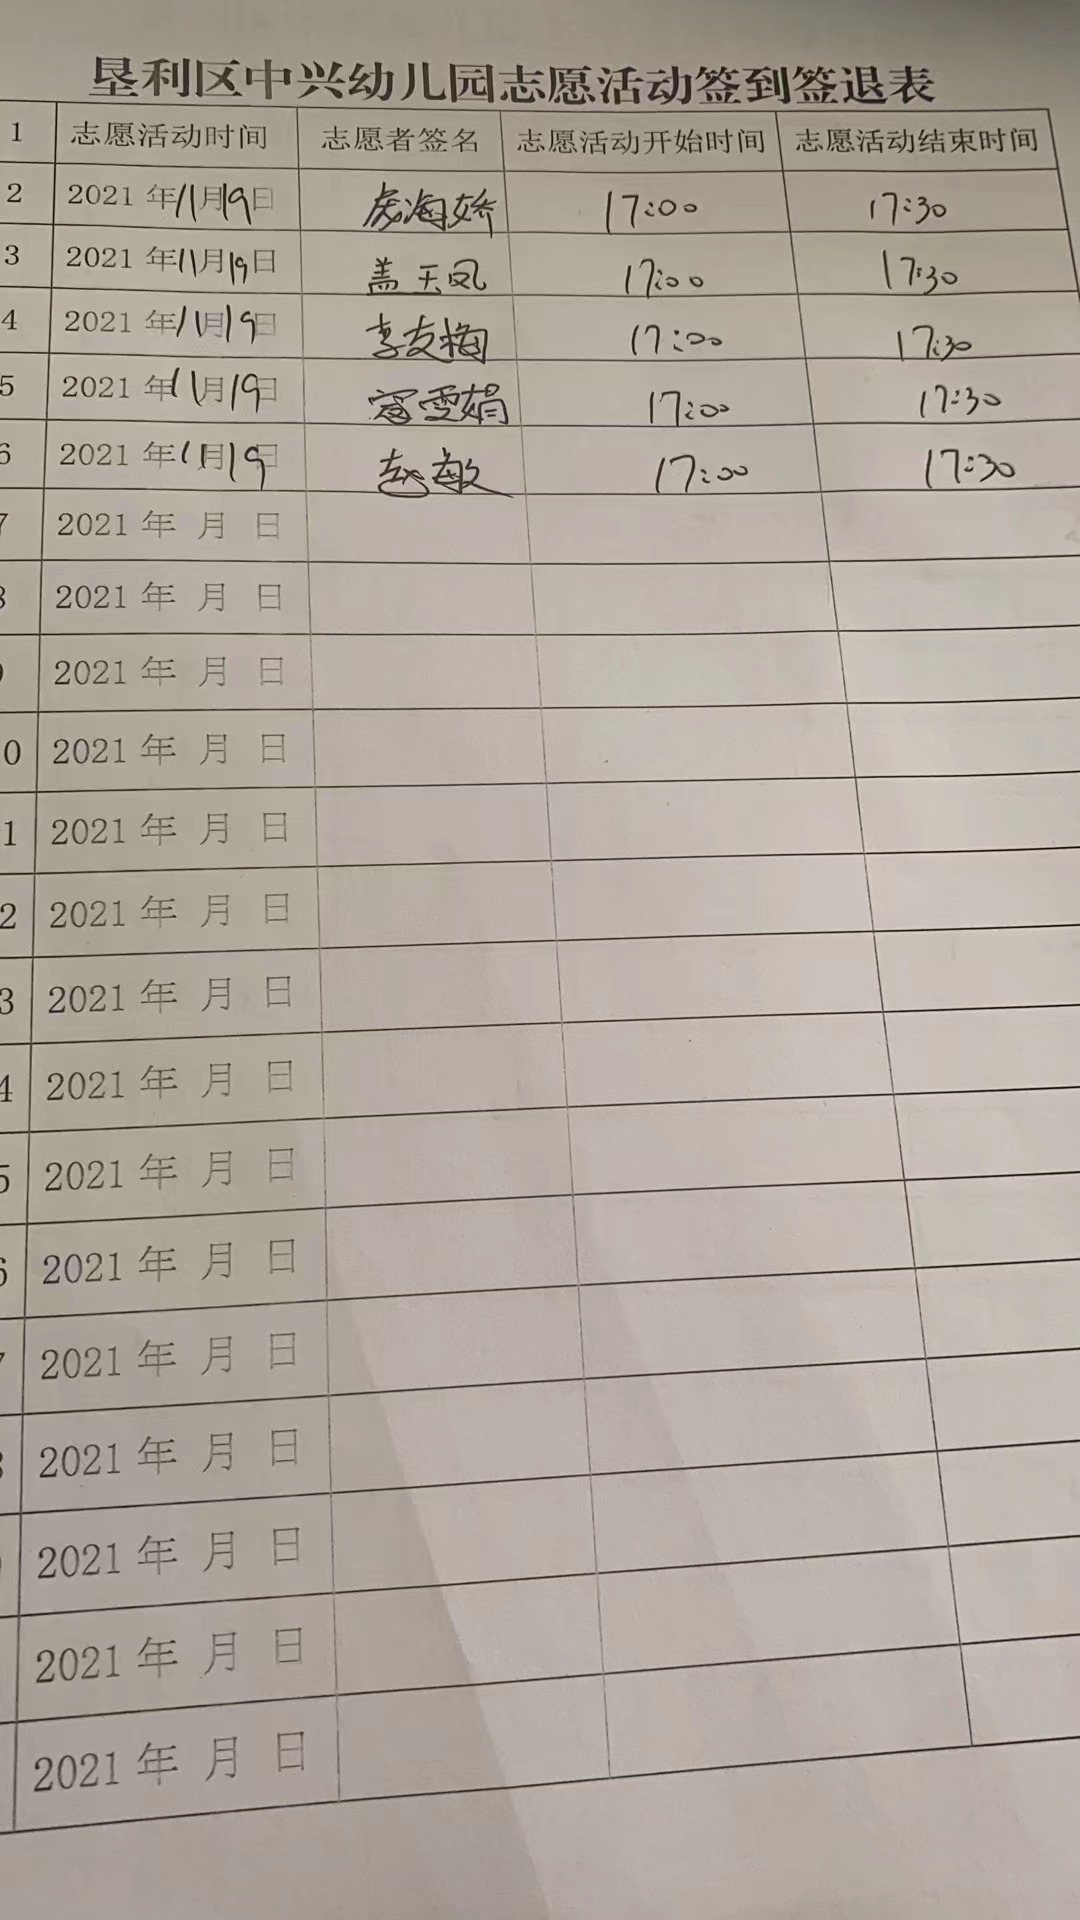 垦利区中兴幼儿园志愿活动签到签退表
1 志愿活动时间 志愿者签名 志愿活动开始时间 志愿活动结束时间
2 2021 年11月19日 海娇 17:00 17:30
3 2021 年11月19日 盖天凤 17:00 17:30
4 2021 年11月19日 李友梅 17:00 17:30
5 2021 年11月19日 雪娟 17:00 17:30
6 2021 年11月19日 赵敏 17:00 17:30
7 2021 年 月 日
8 2021 年 月 日
2021 年 月 日
0 2021 年 月 日
1 2021 年 月 日
2 2021 年 月 日
3 2021 年 月 日
4 2021 年 月 日
5 2021 年 月 日
6 2021 年 月 日
7 2021 年 月 日
8 2021 年 月 日
2021 年 月 日
2021 年 月 日
2021 年 月 日